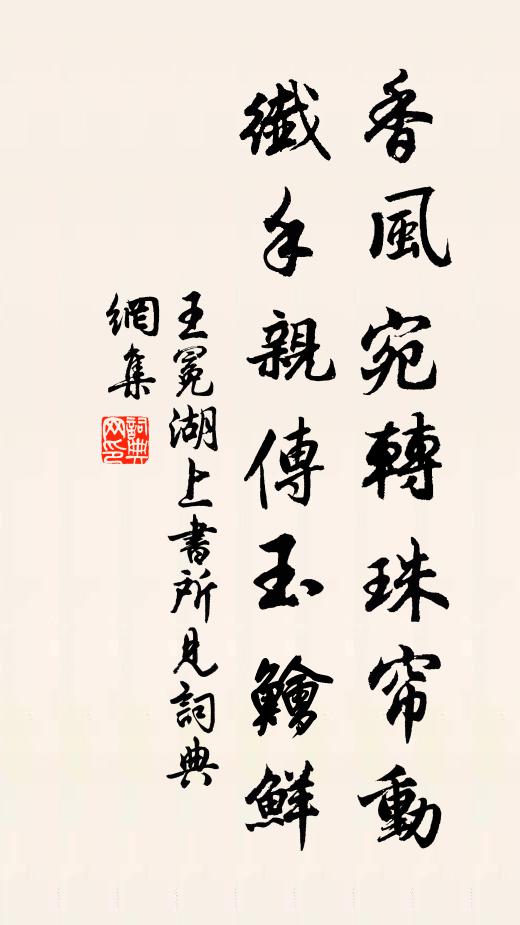 香風宛轉珠帘動
纖手親傳玉鱠鮮
王冕湖上書所見詞典
網集
詞典
网印